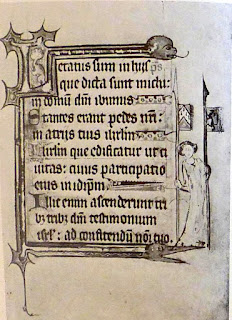 Letatus sum in hijs
que dicta sunt michi:
in domū dn̄i ibimus
Stantes erant pedes nr̄i:
in atrijs tuis ihrl̄m
Ihrl̄m que edificatur ut ci
uitas: cuius participatio
eius in idip̄m
Illic enim ascenderunt tri
bꝫ tribꝫ dn̄i testimonium
isrl̄: ad confitendū nōi tuo.